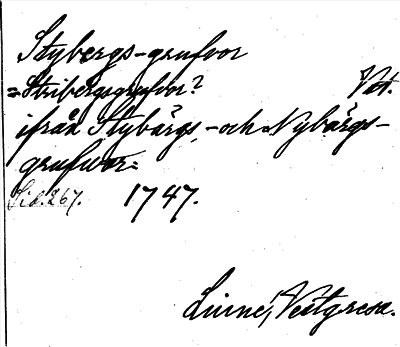 Stybergs-grufvor
=Stribergsgrufvor? Vet.
ifrån Stybärgs,-och Nybärgs-
grufwor=
Sid. 267. 1747.
Linné, Vestgresa.